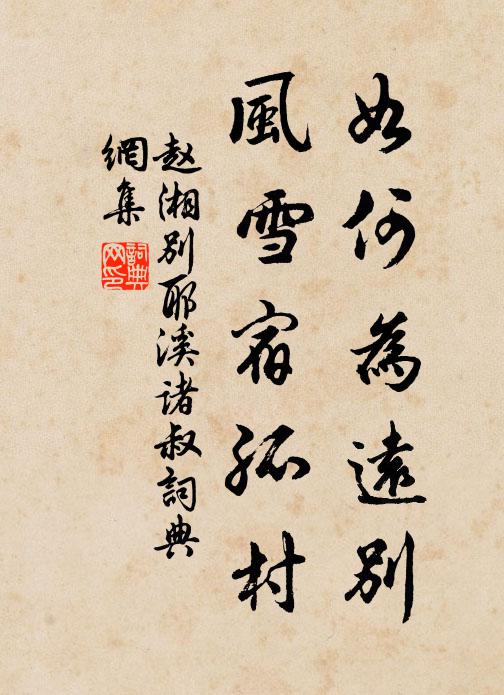 如何為遠別
風雪宿孤村
赵湘别耶溪诸叔詞典
網集
詞典网印